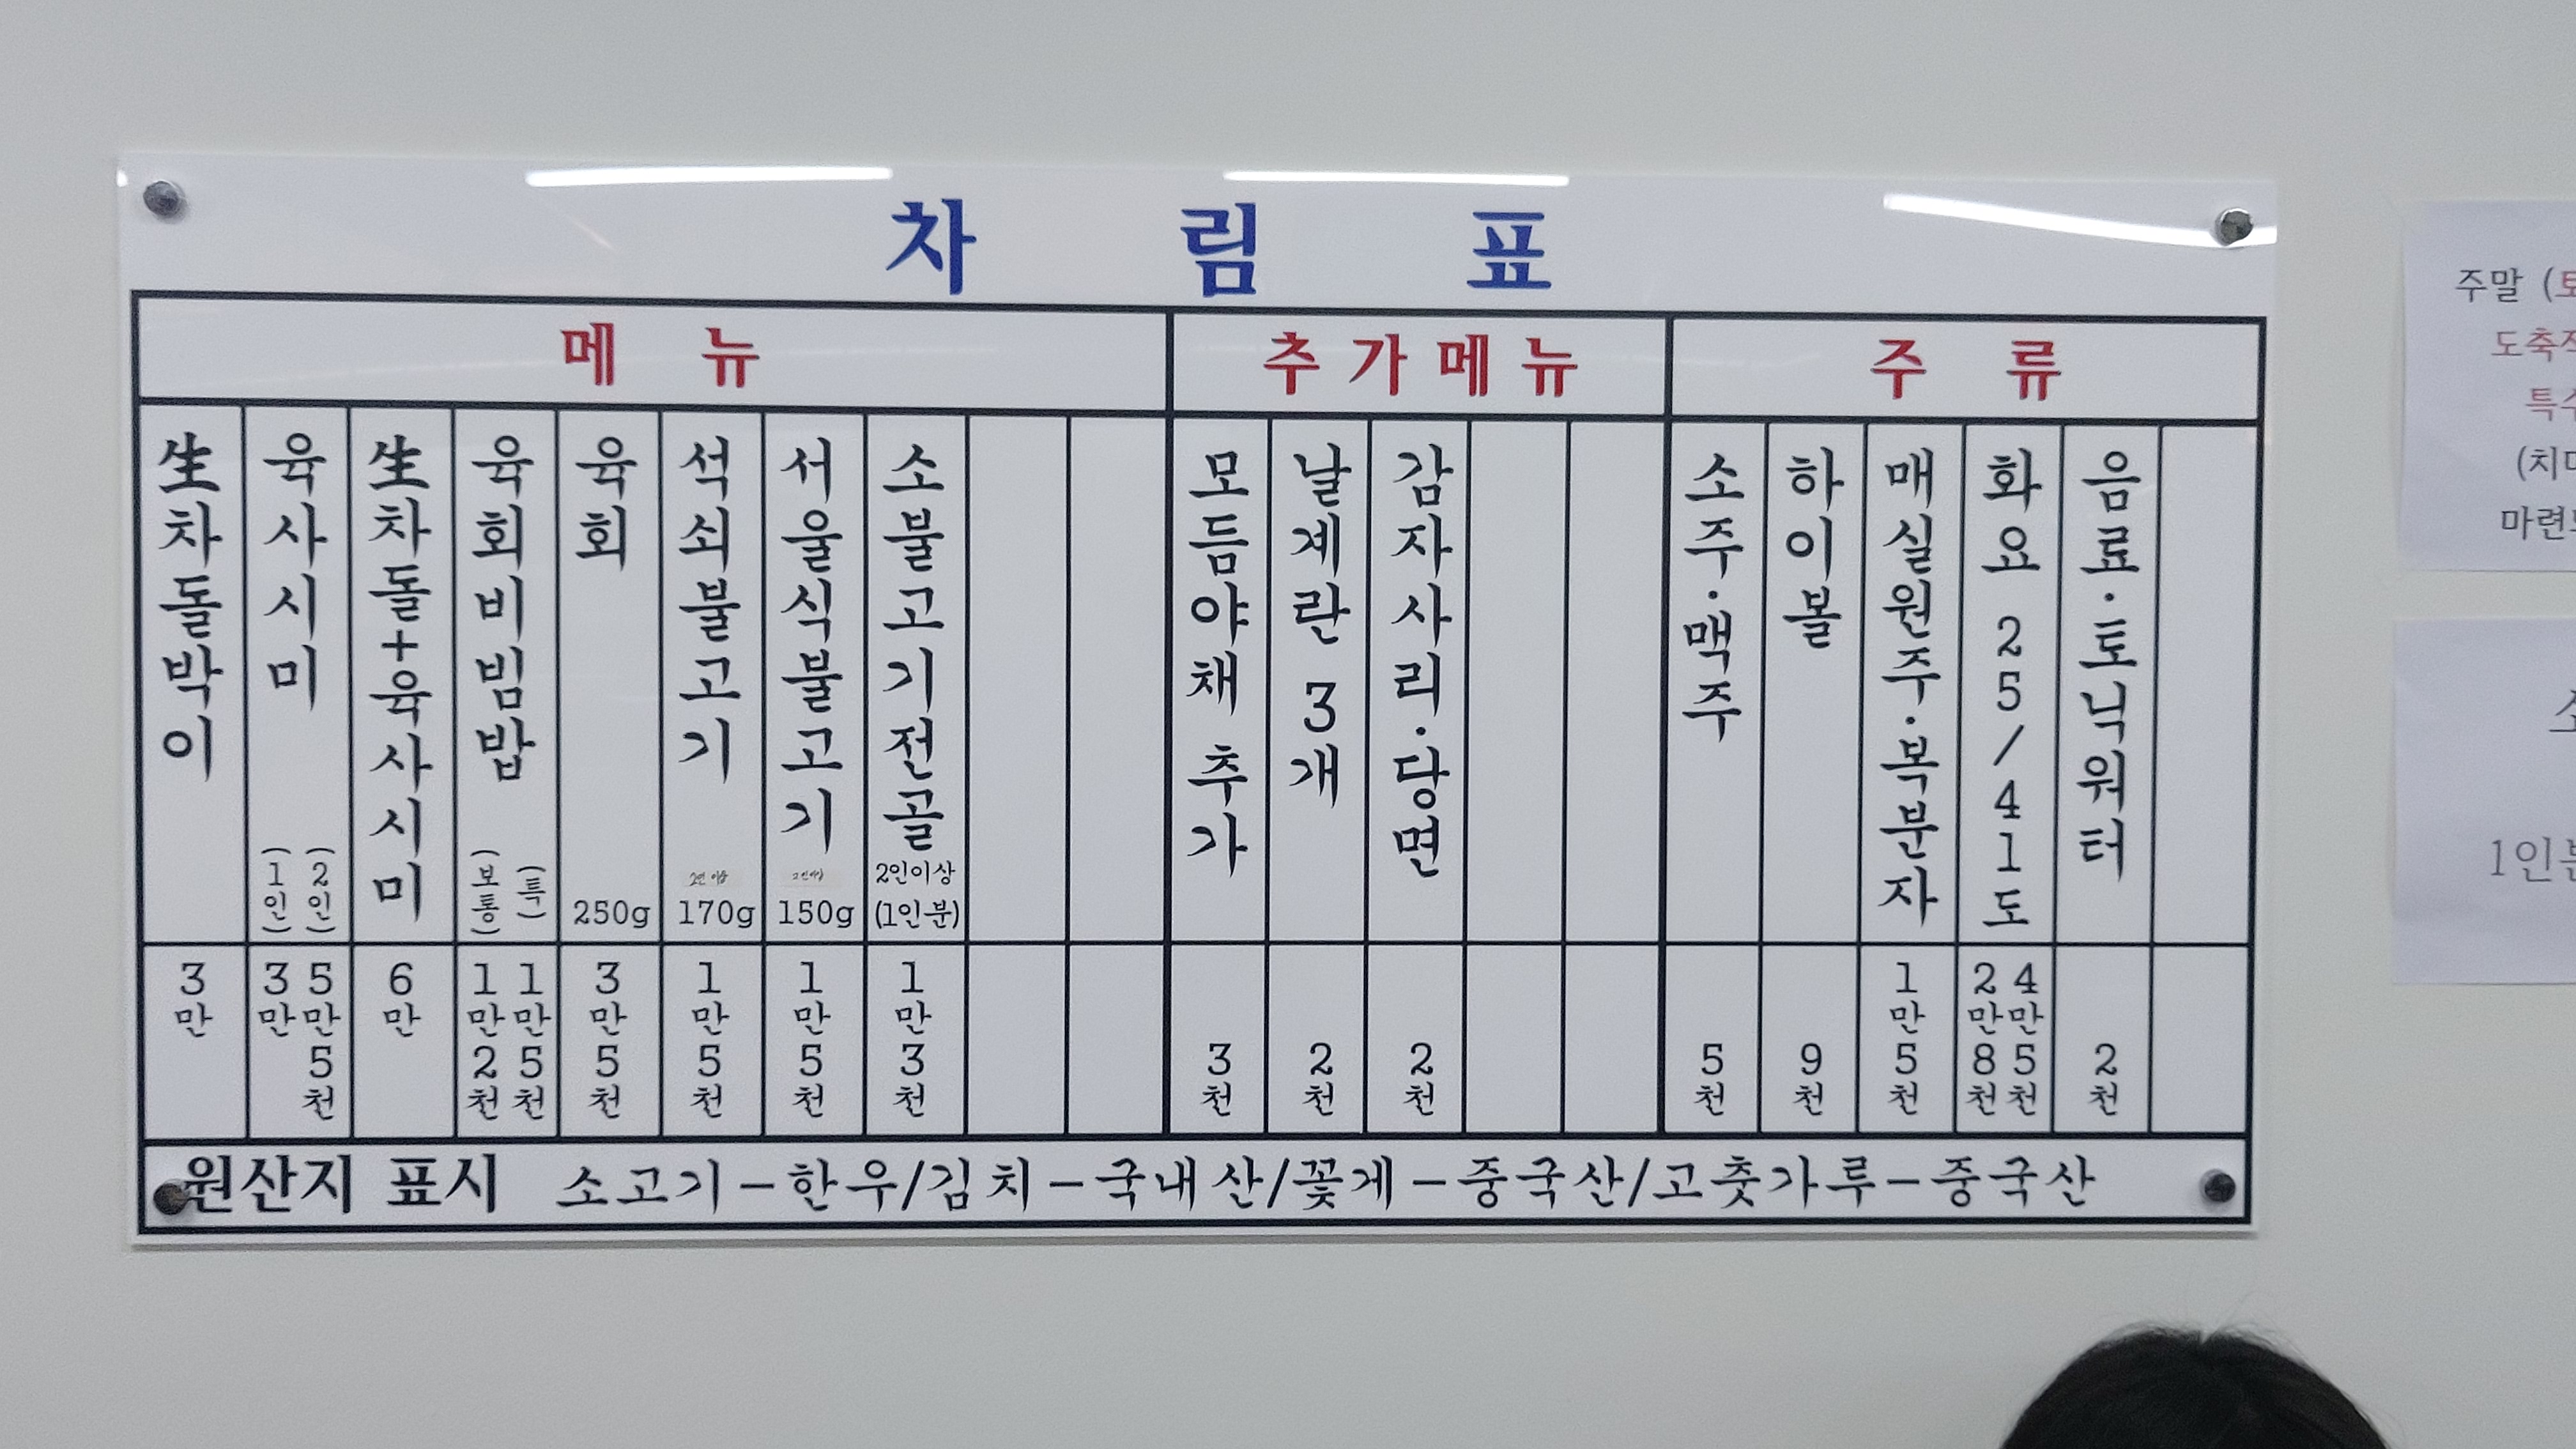 차림표
메뉴
추가메뉴
주류
生차돌박이
3만
육사시미
(1인)
(2인)
3만
5만5천
生차돌+육사시미
6만
육회비빔밥
(보통)
(특)
1만2천
1만5천
육회
250g
3만5천
석쇠불고기
170g
1만5천
서울식불고기
150g
1만5천
소불고기전골
2인이상
(1인분)
1만3천
모듬야채 추가
3천
날계란 3개
2천
감자사리·당면
2천
소주·맥주
5천
하이볼
9천
매실원주·복분자
1만5천
화요 25/41도
2만8천
4만5천
음료·토닉워터
2천
원산지 표시 소고기-한우/김치-국내산/꽃게-중국산/고춧가루-중국산
주말
마련